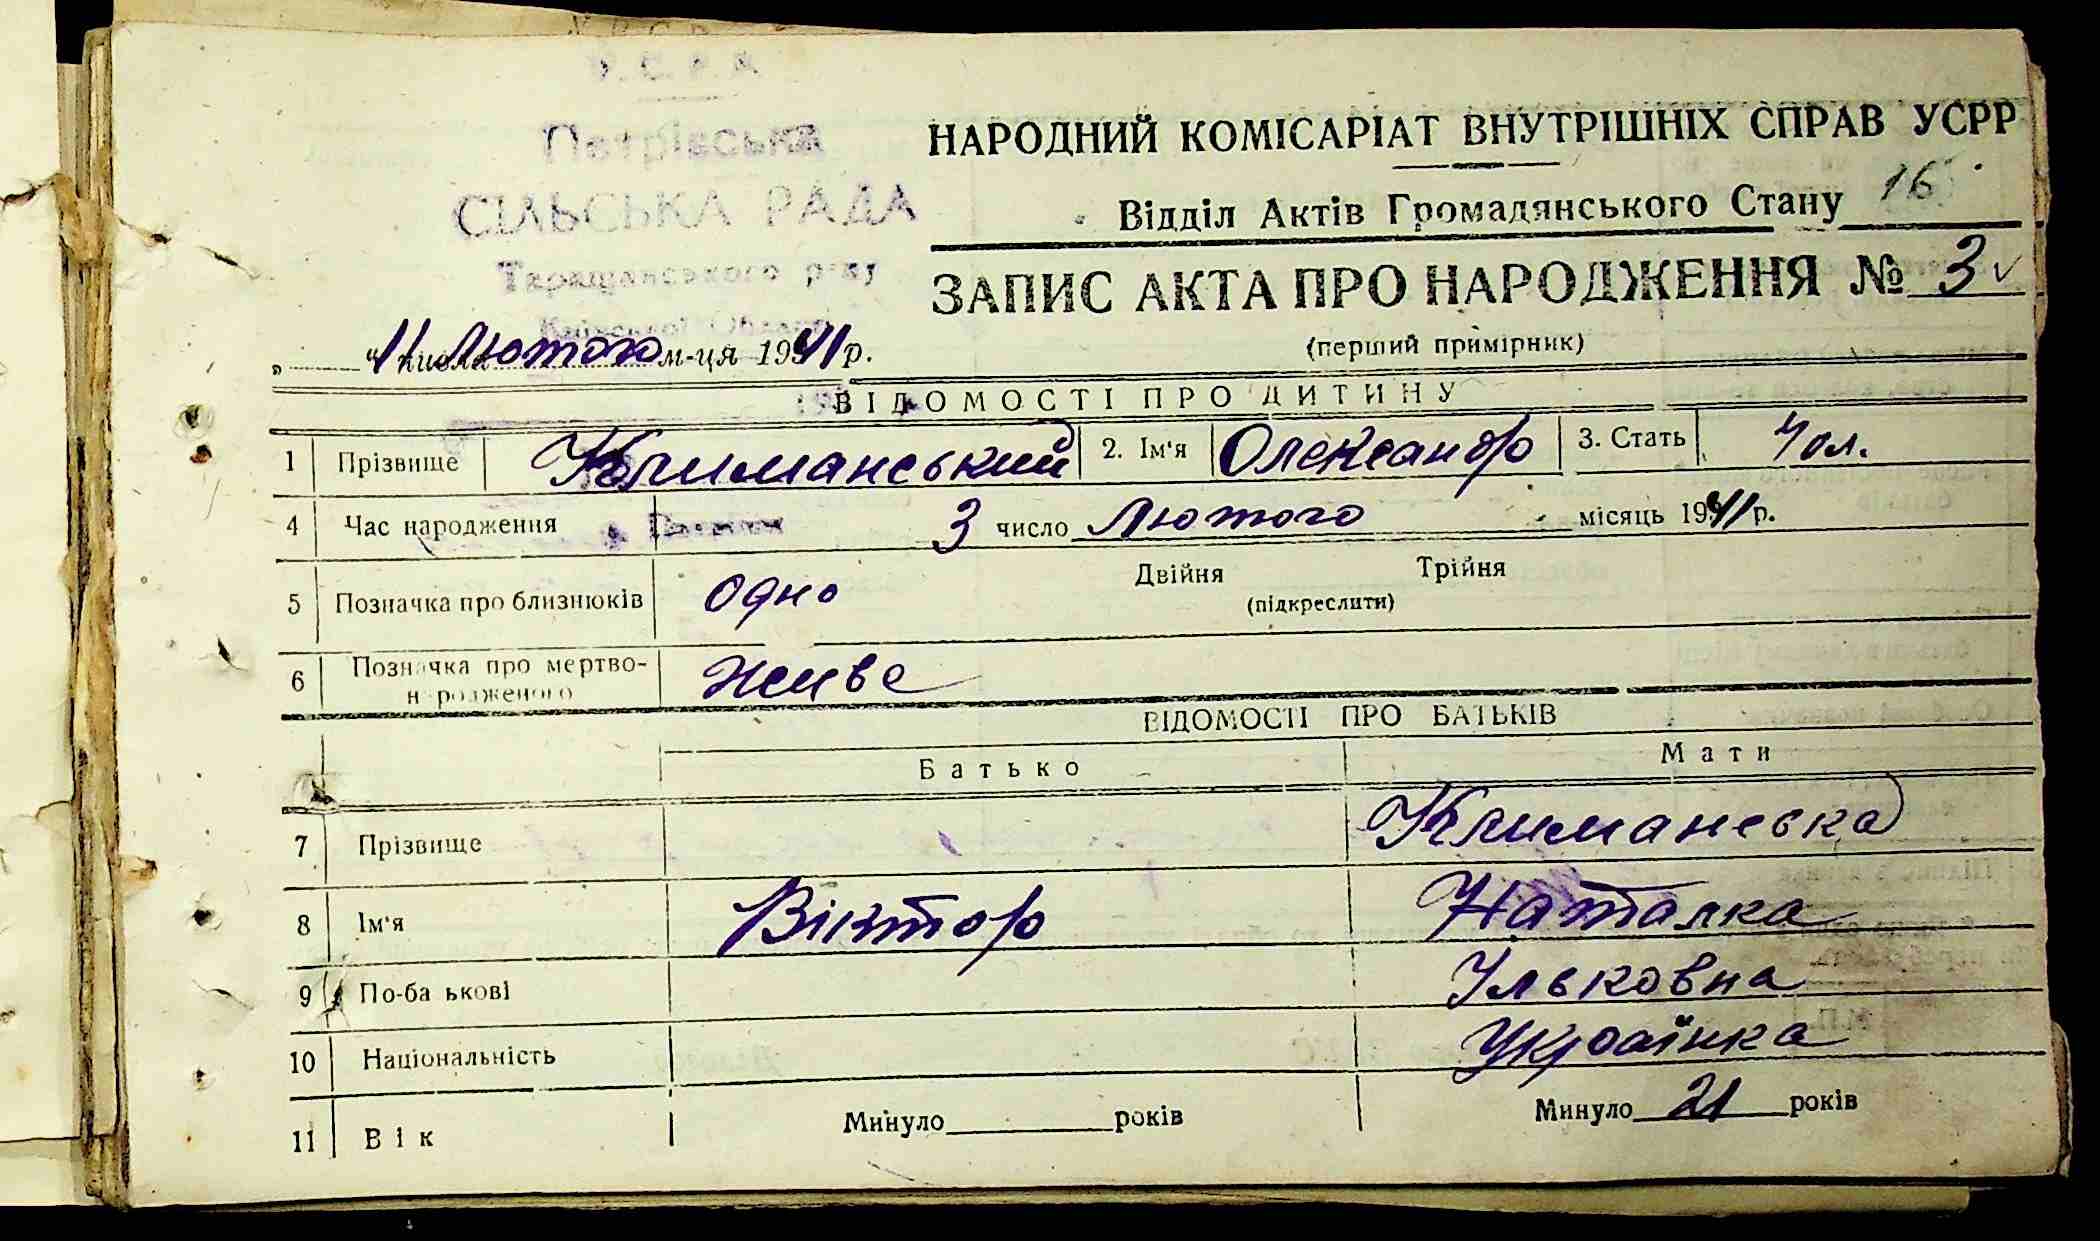 У. С. Р. Р.
Петрівська
СІЛЬСЬКА РАДА
Таращанського р-ну
Київської Області
НАРОДНИЙ КОМІСАРІАТ ВНУТРІШНІХ СПРАВ УСРР
Відділ Актів Громадянського Стану 16
ЗАПИС АКТА ПРО НАРОДЖЕННЯ № 3
(перший примірник)
„ 11 " числа Лютого м-ця 1941 р.
ВІДОМОСТІ ПРО ДИТИНУ
1 Прізвище Климанський 2. Ім'я Олександр 3. Стать Чол.
4 Час народження 3 число Лютого місяць 1941 р.
5 Позначка про близнюків одно Двійня Трійня
(підкреслити)
6 Позначка про мертво-
народженого живе
ВІДОМОСТІ ПРО БАТЬКІВ
Батько Мати
7 Прізвище Климанська
8 Ім'я Віктор Наталка
9 По-ба ькові Ільковна
10 Національність Українка
11 Вік Минуло років Минуло 21 років